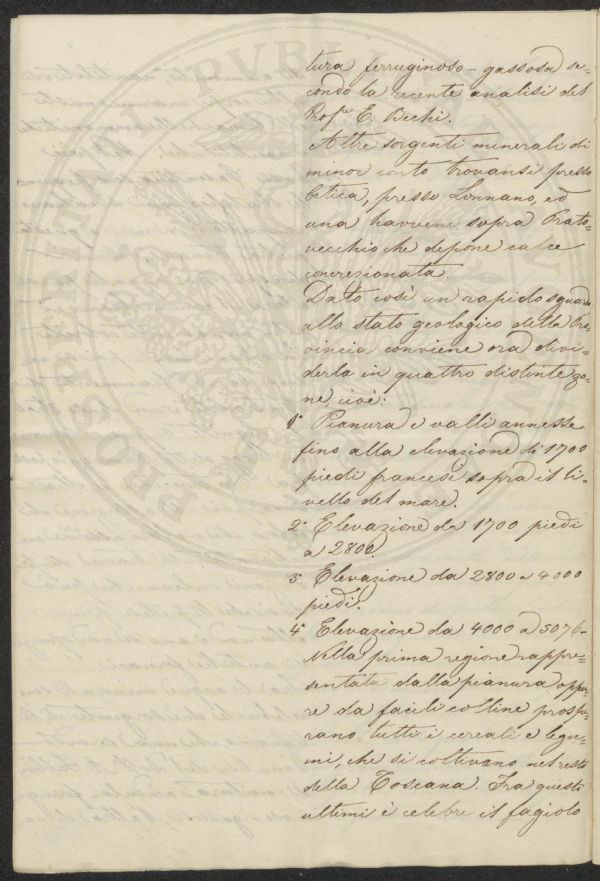 tura ferruginoso-gassosa se-
condo la recente analisi del
Prof.e E. Bechi.
Altre sorgenti minerali di
minor conto trovansi presso
Cetica, presso Lonnano, ed
una havvene sopra Prato-
vecchio che depone calce
concrezionata.
Dato così un rapido sguardo
allo stato geologico della Pro-
vincia conviene ora divi-
derla in quattro distinte zo-
ne, cioè:
1° Pianura e valli annesse
fino alla elevazione di 1700
piedi francesi sopra il li-
vello del mare.
2° Elevazione da 1700 piedi
a 2800
3° Elevazione da 2800 a 4000
piedi.
4° Elevazione da 4000 a 5076-
Nella prima regione rappre-
sentata dalla pianura oppu-
re da facili colline prospe-
rano tutti i cereali e legu-
mi, che si coltivano nel resto
della Toscana. Fra questi
ultimi è celebre il fagiolo